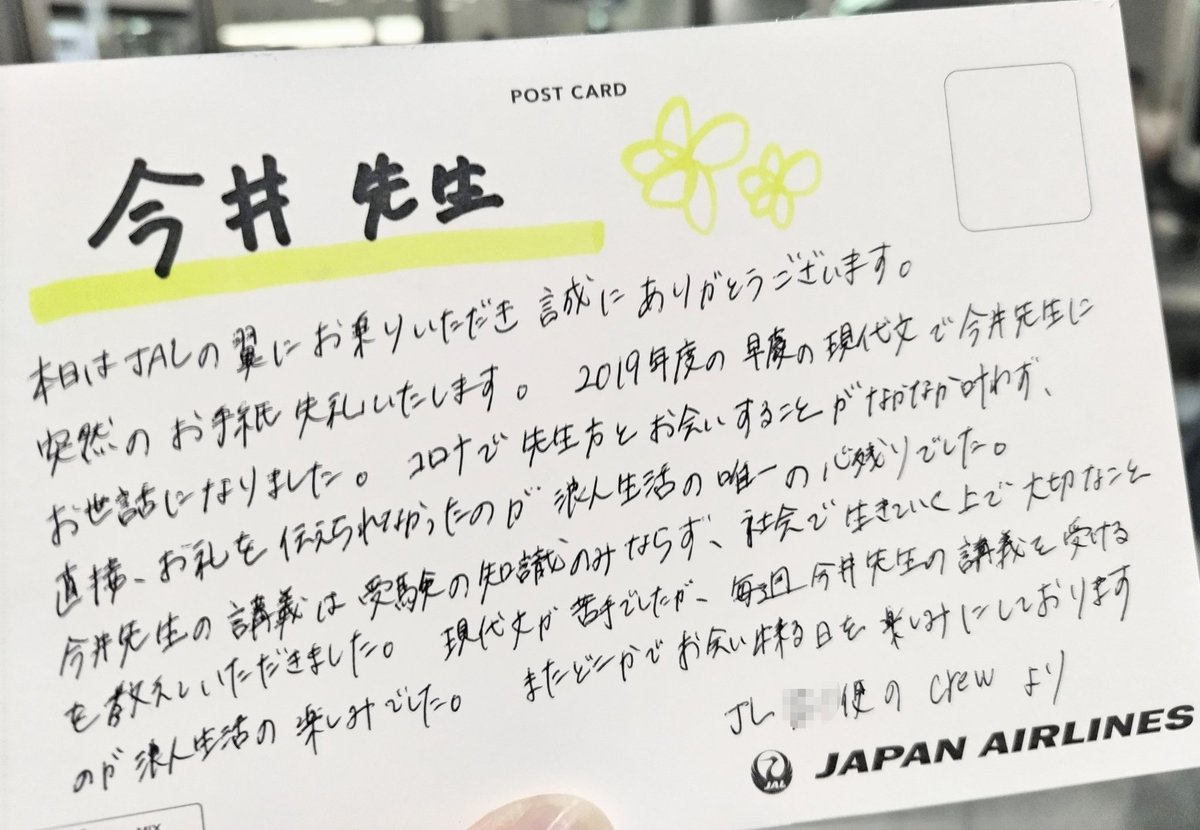 POST CARD
今井 先生
本日はJALの翼にお乗りいただき 誠に ありがとうございます。
突然の お手紙 失礼いたします。 2019年度の 早慶の現代文で 今井先生に
お世話になりました。 コロナで 先生方と お会いすることが なかなか叶わず、
直接、お礼を 伝えられなかったのが 浪人生活の 唯一の 心残りでした。
今井先生の 講義は 受験の知識のみならず、社会で 生きていく上で 大切なこと
を 教えていただきました。 現代文が 苦手でしたが、毎週 今井先生の 講義を 受ける
のが 浪人生活の 楽しみでした。 またどこかで お会い出来る日を 楽しみにしております
JL 便の crew より
JAL JAPAN AIRLINES
MIX